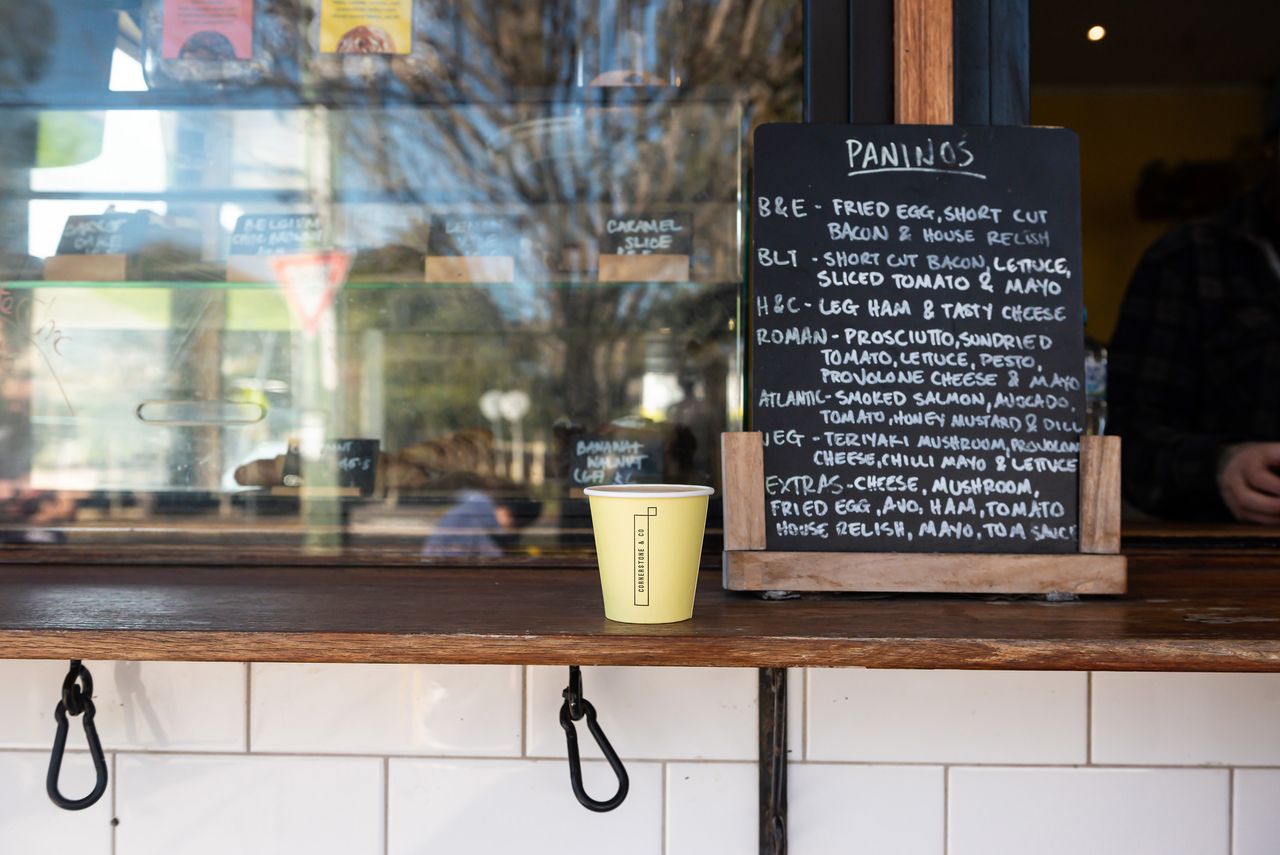 CARAMEL
SLICE
BANANA +
WALNUT
CORNERSTONE & CO
PANINOS
B&E - FRIED EGG, SHORT CUT
BACON & HOUSE RELISH
BLT - SHORT CUT BACON, LETTUCE,
SLICED TOMATO & MAYO
H&C - LEG HAM & TASTY CHEESE
ROMAN - PROSCIUTTO, SUNDRIED
TOMATO, LETUCE, PESTO,
PROVOLONE CHEESE & MAYO
ATLANTIC - SMOKED SALMON, AVOCADO,
TOMATO, HONEY MUSTARD & DILL
VEG - TERIYAKI MUSHROOM, PROVOLONE
CHEESE, CHILLI MAYO & LETTUCE
EXTRAS - CHEESE, MUSHROOM,
FRIED EGG, AVO, HAM, TOMATO
HOUSE RELISH, MAYO, TOM SAUCE